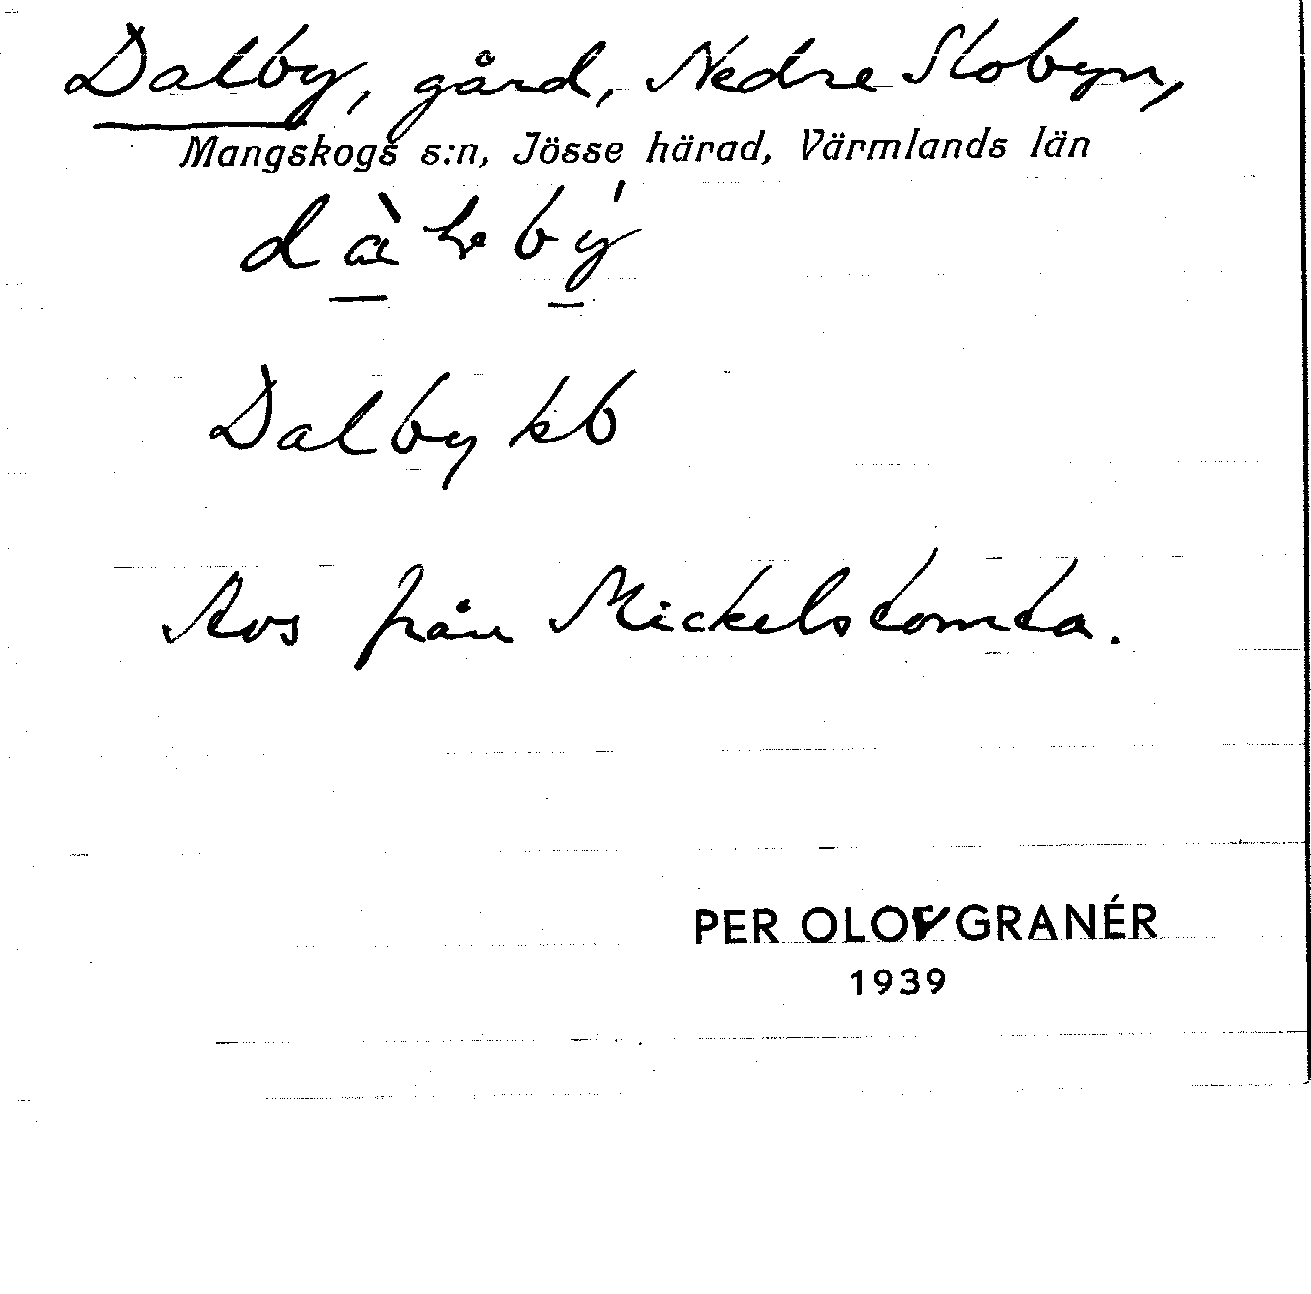 Dalby, gård, Nedre Slobyn,
Mangskogs s:n, Jösse härad, Värmlands län
Dalby kb
Avs från Mickelstomta.
PER OLOV GRANÉR
1939